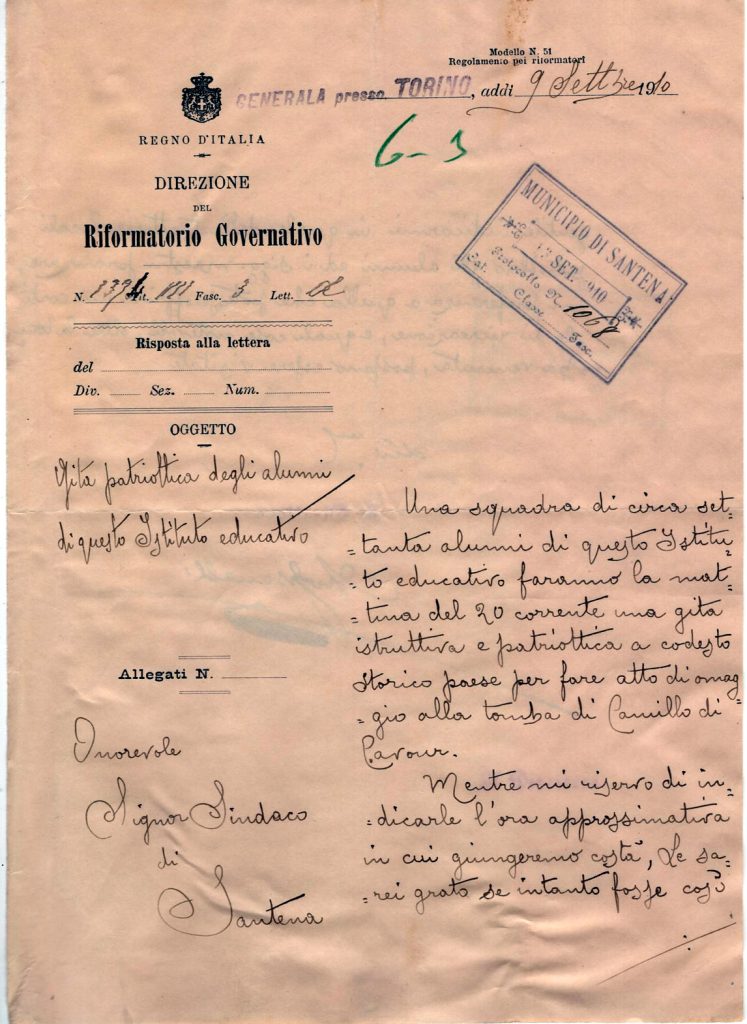 Modello N. 51
Regolamento pei riformatori
GENERALA presso TORINO, addì 9 Settbre 1910
G-3
REGNO D'ITALIA
DIREZIONE
DEL
Riformatorio Governativo
N. Tit. III Fasc. 3 Lett.
Risposta alla lettera
del
Div. Sez. Num.
OGGETTO
Gita patriottica degli alunni
di questo Istituto educativo
Allegati N.
Onorevole
Signor Sindaco
di
Santena
MUNICIPIO DI SANTENA
SET. 910
Protocollo N. 1068
Cat. Classe Fasc.
Una squadra di circa set-
-tanta alunni di questo Istitu-
-to educativo faranno la mat-
-tina del 20 corrente una gita
istruttiva e patriottica a codesto
storico paese per fare atto di omag-
-gio alla tomba di Camillo di
Cavour.
Mentre mi riservo di in-
-dicarle l'ora approssimativa
in cui giungeremo costà, Le sa-
-rei grato se intanto fosse così